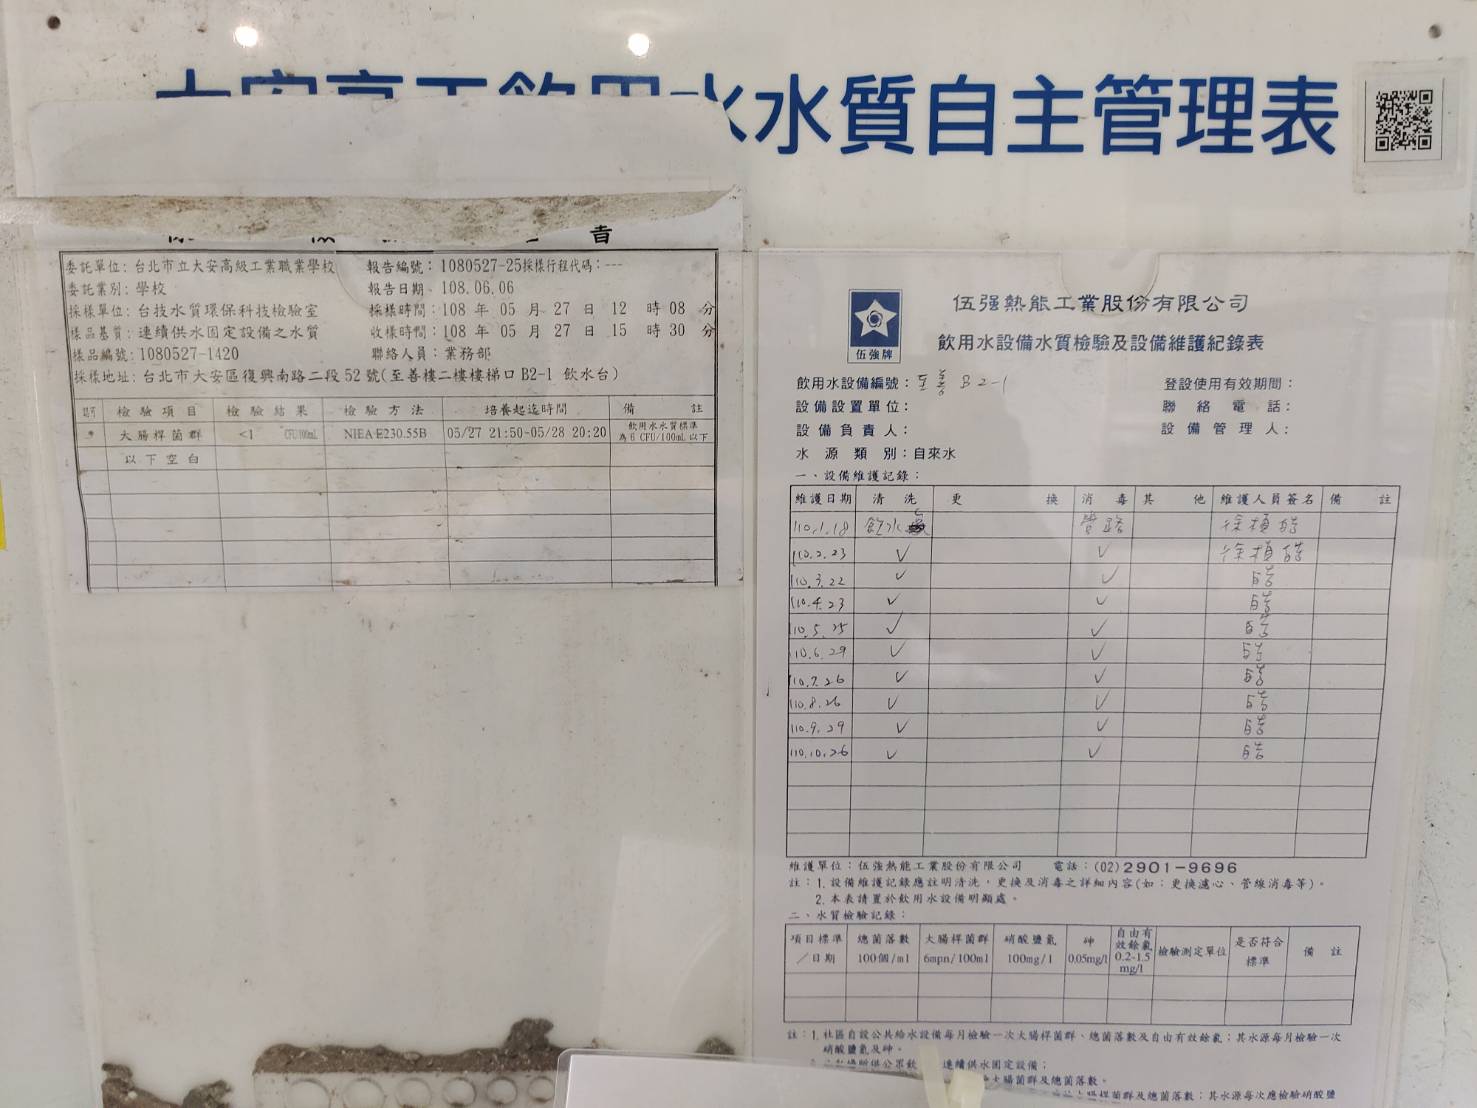 大安高工飲用水水質自主管理表
委託單位：台北市立大安高級工業職業學校 報告編號：1080527-25採樣行程代碼：---
委託業別：學校 報告日期：108.06.06
採樣單位：台技水質環保科技檢驗室 採樣時間：108 年 05 月 27 日 12 時 08 分
樣品基質：連續供水固定設備之水質 收樣時間：108 年 05 月 27 日 15 時 30 分
樣品編號：1080527-1420 聯絡人員：業務部
採樣地址：台北市大安區復興南路二段 52 號(至善樓二樓樓梯口 B2-1 飲水台)
檢驗項目 檢驗結果 檢驗方法 培養起迄時間 備註
* 大腸桿菌群 <1 CFU/100mL NIEA E230.55B 05/27 21:50-05/28 20:20 飲用水水質標準
為 6 CFU/100mL 以下
以下空白
伍強牌
伍强熱能工業股份有限公司
飲用水設備水質檢驗及設備維護紀錄表
飲用水設備編號：至善 B2-1 登設使用有效期間：
設備設置單位： 聯絡電話：
設備負責人： 設備管理人：
水源類別：自來水
一、設備維護記錄：
維護日期 清洗 更換 消毒 其他 維護人員簽名 備註
110.1.18 飲水 管路
110.2.23 ✓ ✓
110.3.22 ✓ ✓ 皓
110.4.23 ✓ ✓ 皓
110.5.25 ✓ ✓ 皓
110.6.29 ✓ ✓ 皓
110.7.26 ✓ ✓ 皓
110.8.26 ✓ ✓ 皓
110.9.29 ✓ ✓ 皓
110.10.26 ✓ ✓ 皓
維護單位：伍強熱能工業股份有限公司 電話：(02)2901-9696
註：1.設備維護記錄應註明清洗，更換及消毒之詳細內容(如：更換濾心、管線消毒等)。
2.本表請置於飲用水設備明顯處。
二、水質檢驗記錄：
項目標準／日期 總菌落數 100個/ml 大腸桿菌群 6mpn/100ml 硝酸鹽氮 100mg/l 砷 0.05mg/l 自由有效餘氯 0.2-1.5 mg/l 檢驗測定單位 是否符合標準 備註
註：1.社區自設公共給水設備每月檢驗一次大腸桿菌群、總菌落數及自由有效餘氯；其水源每月檢驗一次
硝酸鹽氮及砷。
供公眾飲 連續供水固定設備；
大腸菌群及總菌落數。
菌群及總菌落數；其水源每次應檢驗硝酸鹽